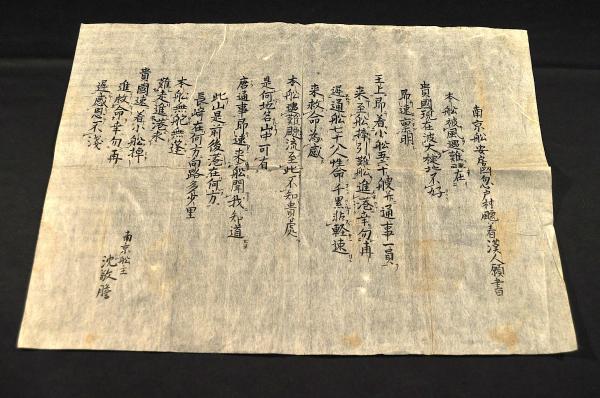 南京船安房國忽戸村飄着漢人願書
本船被風遇難在
貴國現在波大碇地不好
即速禀明
王上即着小船五六十艘并通事一員
来至船捧引難船進港幸勿再
遲通船七十八人性命千非輕速
来救命為感
本船遇難飄流至此不知貴處
是何地名山中可有
唐通事即速来船聞我知道
此山是前後港在何方
長崎在何方向路多少里
本船無舵無蓬
難走進港求
貴國速着小船棹
進救命幸勿再
遲感恩不淺
南京船主
沈敬瞻